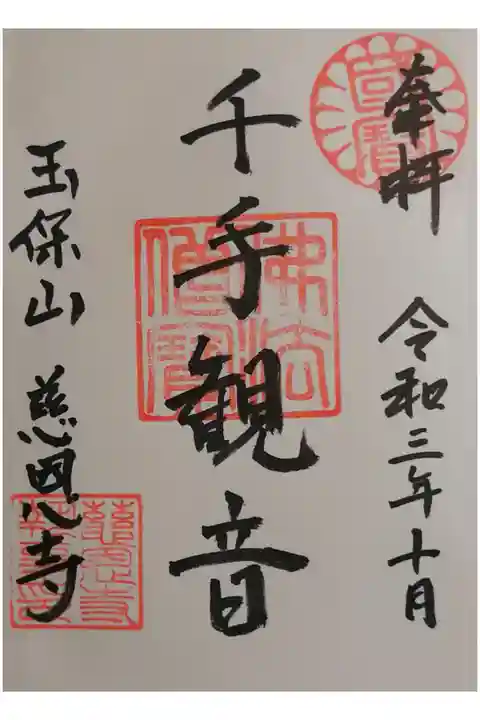 奉拝 令和三年十月
千手観音
玉保山 慈恩寺
佛法僧寶